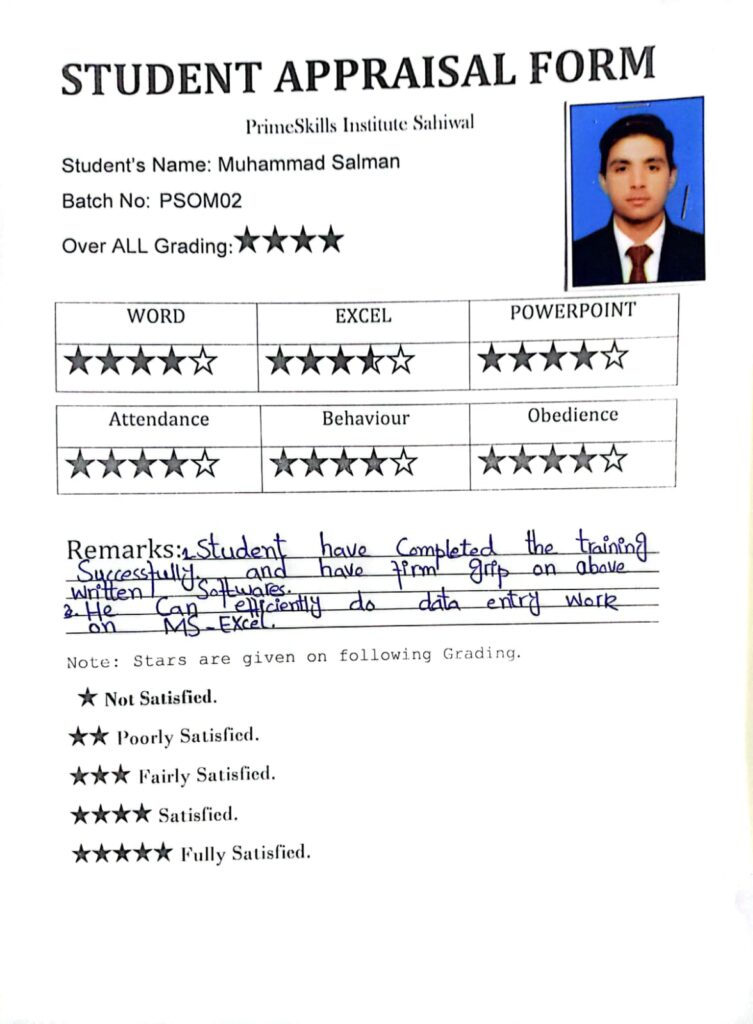 STUDENT APPRAISAL FORM
PrimeSkills Institute Sahiwal
Student's Name: Muhammad Salman
Batch No: PSOM02
Over ALL Grading:★★★★
WORD EXCEL POWERPOINT
★★★★☆ ★★★★☆ ★★★★☆
Attendance Behaviour Obedience
★★★★☆ ★★★★☆ ★★★★☆
Remarks:1.Student have Completed the training
Successfully and have firm grip on above
written Softwares.
2. He Can efficiently do data entry work
on MS-Excel.
Note: Stars are given on following Grading.
★ Not Satisfied.
★★ Poorly Satisfied.
★★★ Fairly Satisfied.
★★★★ Satisfied.
★★★★★ Fully Satisfied.